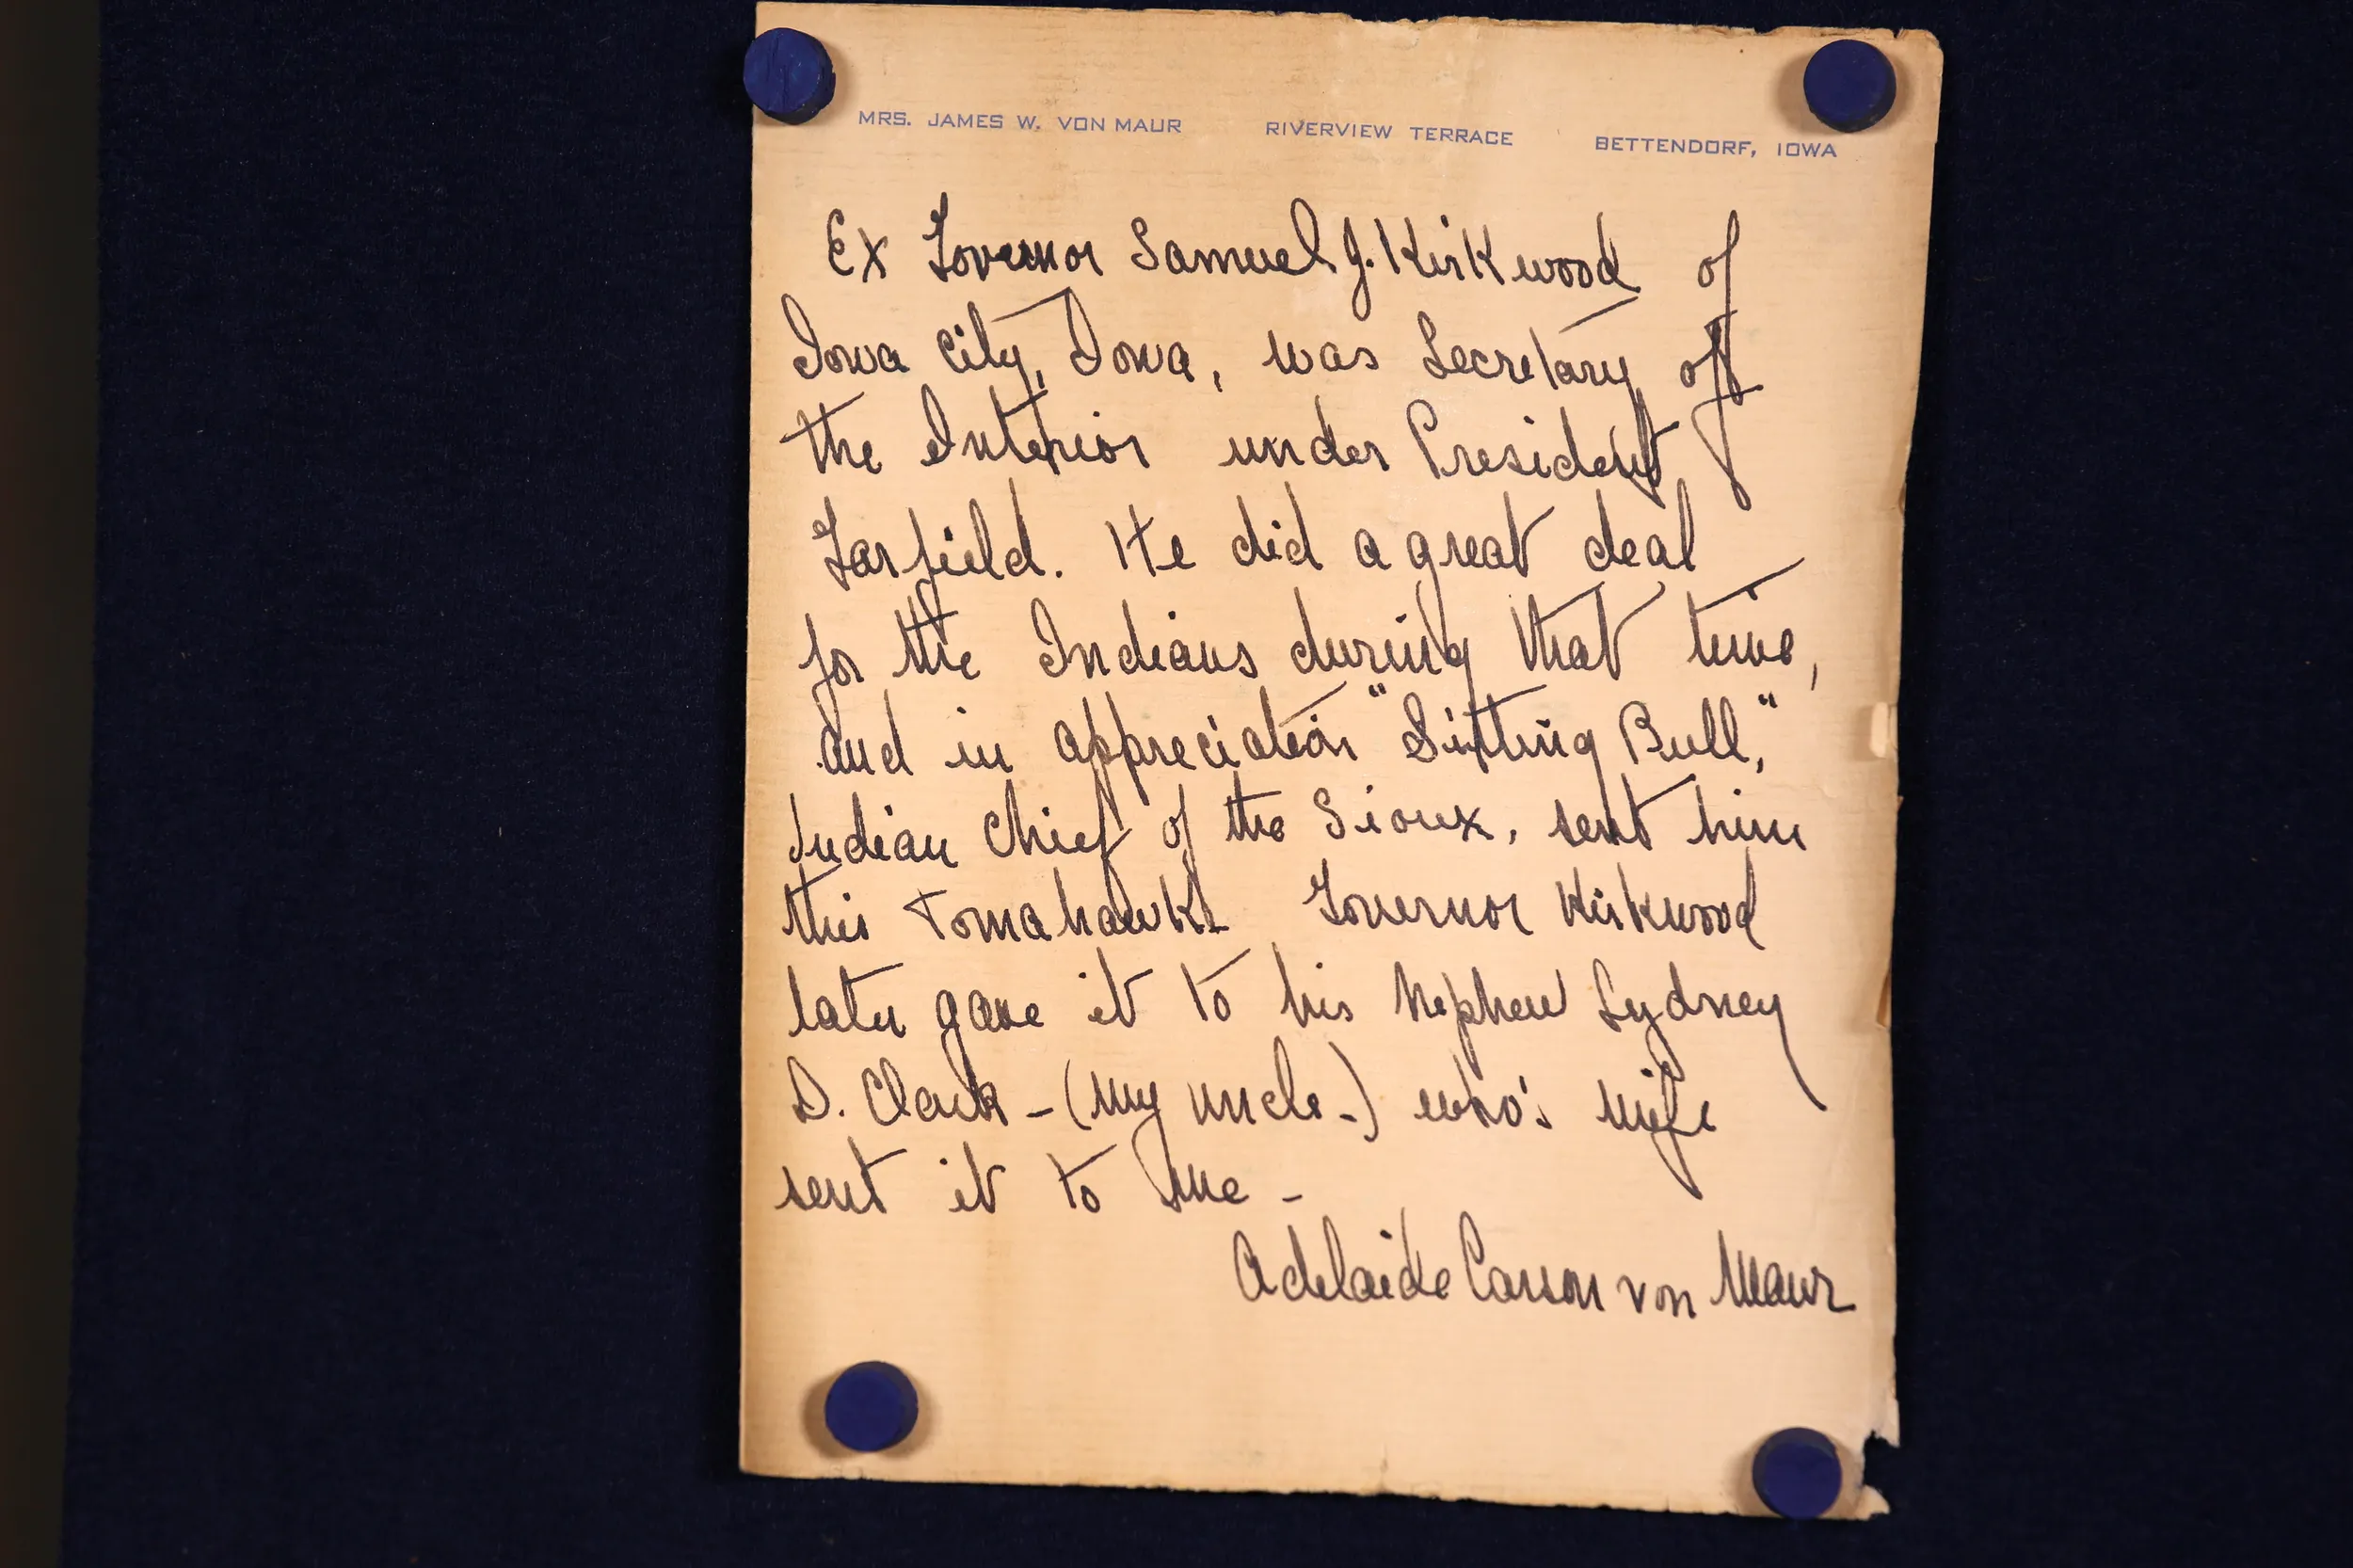 MRS. JAMES W. VON MAUR RIVERVIEW TERRACE BETTENDORF, IOWA
Ex Governor Samuel J. Kirkwood of
Iowa City, Iowa, was Secretary of
the Interior under President
Garfield. He did a great deal
for the Indians during that time,
and in appreciation "Sitting Bull,"
Indian Chief of the Sioux, sent him
this Tomahawk. Governor Kirkwood
later gave it to his Nephew Sydney
D. Clark - (my uncle -) who's wife
sent it to me -
Adelaide Carson von Maur